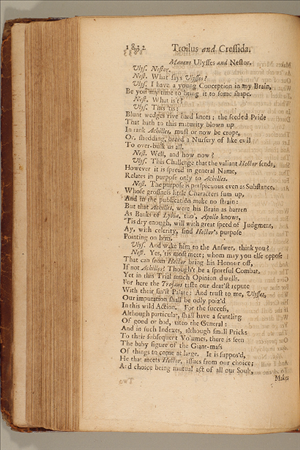 1832 Troilus and Cressida.
Manent Ulysses and Nestor.
Ulys. Nestor.
Nest. What says Ulysses?
Ulys. I have a young Conception in my Brain,
Be you my time to bring it to some shape.
Nest. What is't?
Ulys. This 'tis:
Blunt wedges rive hard knots; the seeded Pride
That hath to this maturity blown up
In rank Achilles, must or now be cropt,
Or, shedding, breed a Nursery of like evil
To over-bulk us all.
Nest. Well, and how now?
Ulys. This Challenge that the valiant Hector sends,
However it is spread in general Name,
Relates in purpose only to Achilles.
Nest. The purpose is perspicuous even as Substance,
Whose grossness little Characters sum up,
And in the publication make no strain,
But that Achilles, were his Brain as barren
As Banks of Lybia, tho', Apollo knows,
'Tis dry enough, will with great speed of Judgment,
Ay, with celerity, find Hector's purpose
Pointing on him.
Ulys. And wake him to the Answer, think you?
Nest. Yes, 'tis most meet; whom may you else oppose
That can from Hector bring his Honour off,
If not Achilles? Though't be a sportful Combat,
Yet in this Trial much Opinion dwells.
For here the Trojans taste our dear'st repute
With their fin'st Palate: And trust to me, Ulysses,
Our imputation shall be odly pois'd
In this wild Action. For the success,
Although particular, shall have a scantling
Of good or bad, unto the General:
And in such Indexes, although small Pricks
To their subsequent Volumes, there is seen
The baby figure of the Giant-mass
Of things to come at large. It is suppos'd,
He that meets Hector, issues from our choice;
And choice being mutual act of all our Souls,
Makes